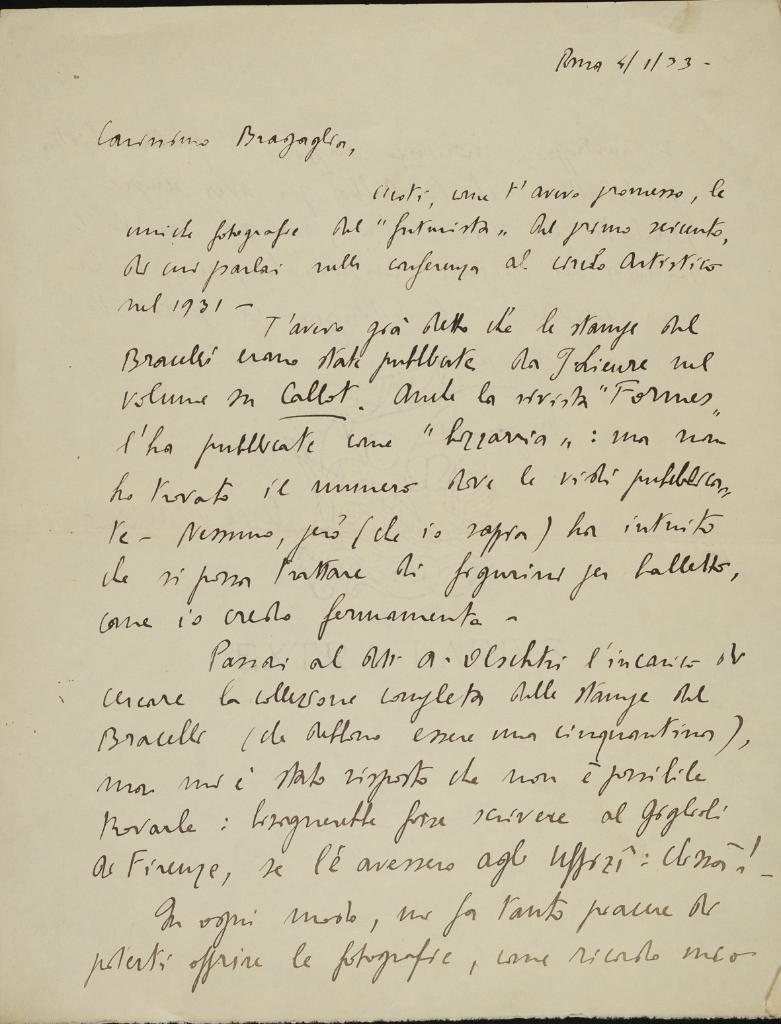 Roma 4/1/33 -
Carissimo Bragaglia,
eccoti, come t'avevo promesso, le
uniche fotografie del "futurista" del primo seicento,
di cui parlai nella conferenza al circolo Artistico
nel 1931 -
T'avevo già detto che le stampe del
Bracelli erano state pubblicate da in nel
volume su Callot. Anche la rivista "Formes"
l'ha pubblicate come "bizzarria": ma non
ho trovato il numero dove le vidi pubblica-
te - Nessuno, però (che io sappia) ha intuito
che si possa trattare di figurini per balletto,
come io credo fermamente -
Passai al dott. A. Olschki l'incarico di
cercare la collezione completa delle stampe del
Bracelli (che debbono essere una cinquantina),
ma mi è stato risposto che non è possibile
trovarle: bisognerebbe forse scrivere al Giglioli
di Firenze, se l'è avessero agli Uffizi: chissà! -
In ogni modo, mi fa tanto piacere di
poterti offrire le fotografie, come ricordo mio